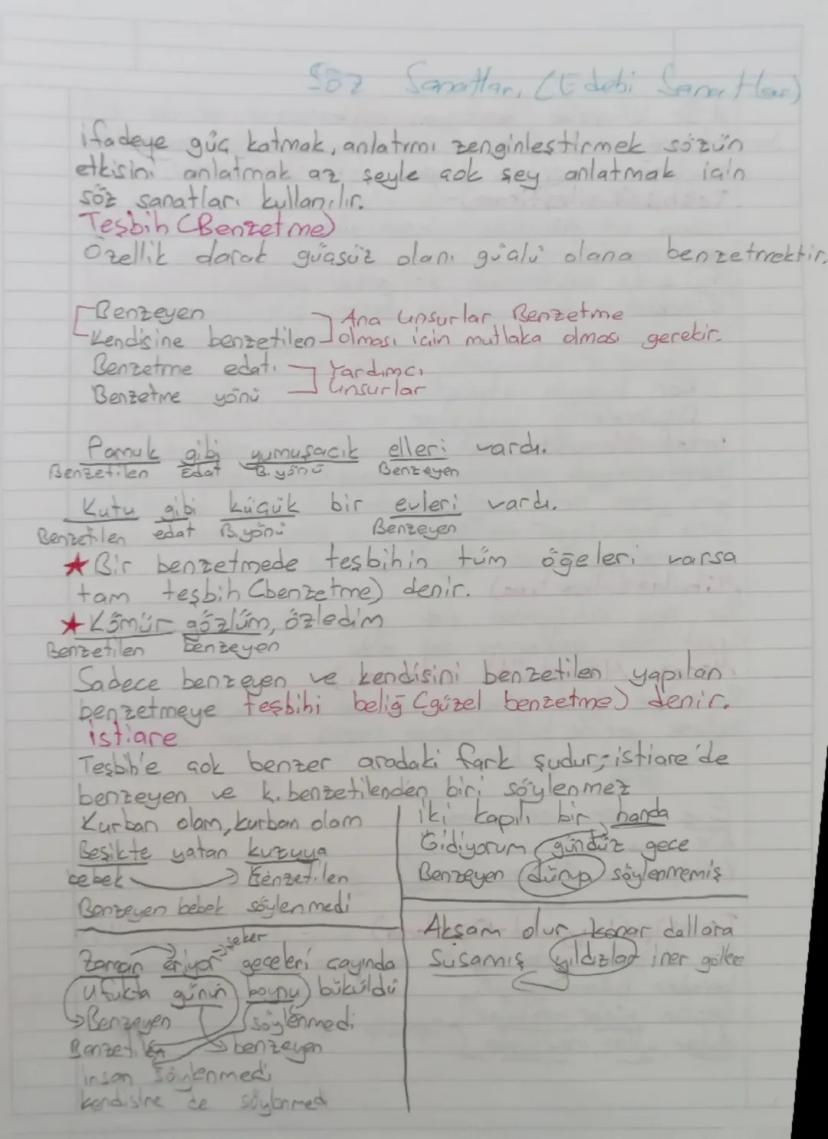 Söz Sanatları (Edebi Sanatlar)
ifadeye güç katmak, anlatımı zenginleştirmek sözün
etkisini anlatmak az şeyle çok şey anlatmak için
söz sanatları kullanılır.
Teşbih (Benzetme)
Özellik darak güçsüz olanı güçlü olana benzetmektir.
Benzeyen
Kendisine benzetilen
Ana Unsurlar Benzetme
olması için mutlaka olması gerekir.
Benzetme edatı
Benzetme yönü
Yardımcı
Unsurlar
Pamuk gibi yumuşacık elleri vardı.
Benzetilen Edat B.yönü Benzeyen
Kutu gibi küçük bir evleri vardı.
Benzetilen edat B.yönü Benzeyen
★ Bir benzetmede teşbihin tüm öğeleri varsa
tam teşbih (benzetme) denir.
★ Kömür gözlüm, özledim
Benzetilen Benzeyen
Sadece benzeyen ve kendisini benzetilen yapılan
benzetmeye teşbihi beliğ (güzel benzetme) denir.
istiare
Teşbih'e çok benzer aradaki fark şudur; istiare'de
benzeyen ve k. benzetilenden biri söylenmez
Kurban olam, kurban olam
Beşikte yatan kuzuya
bebek → Benzetilen
Benzeyen bebek söylenmedi
iki kapılı bir handa
Gidiyorum gündüz gece
Benzeyen dünya söylenmemiş
şeker
Zaman eriyor geceleri çayında
Ufukta günün boynu büküldü
→ Benzeyen söylenmedi
Benzetilen → benzeyen
insan söylenmedi
kendisine de söylenmed
Akşam olur konar dallara
Susamış yıldızlar iner göllere